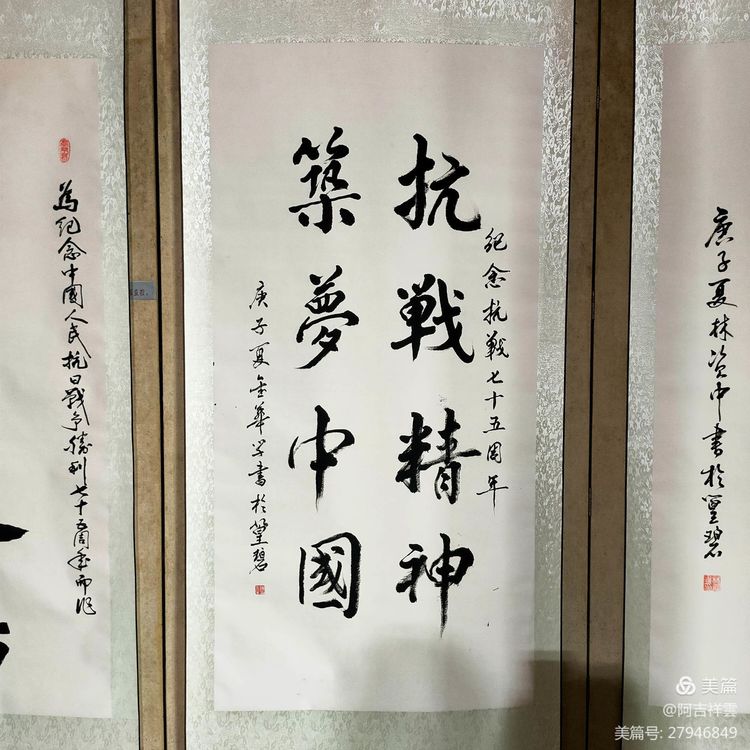 庚子夏林资中書於篁碧
紀念抗戰七十五周年
抗戦精神
築夢中國
庚子夏金華学書於篁碧
為紀念中國人民抗日戰争勝利七十五周年而作
美篇
@阿吉祥雲
美篇号: 27946849